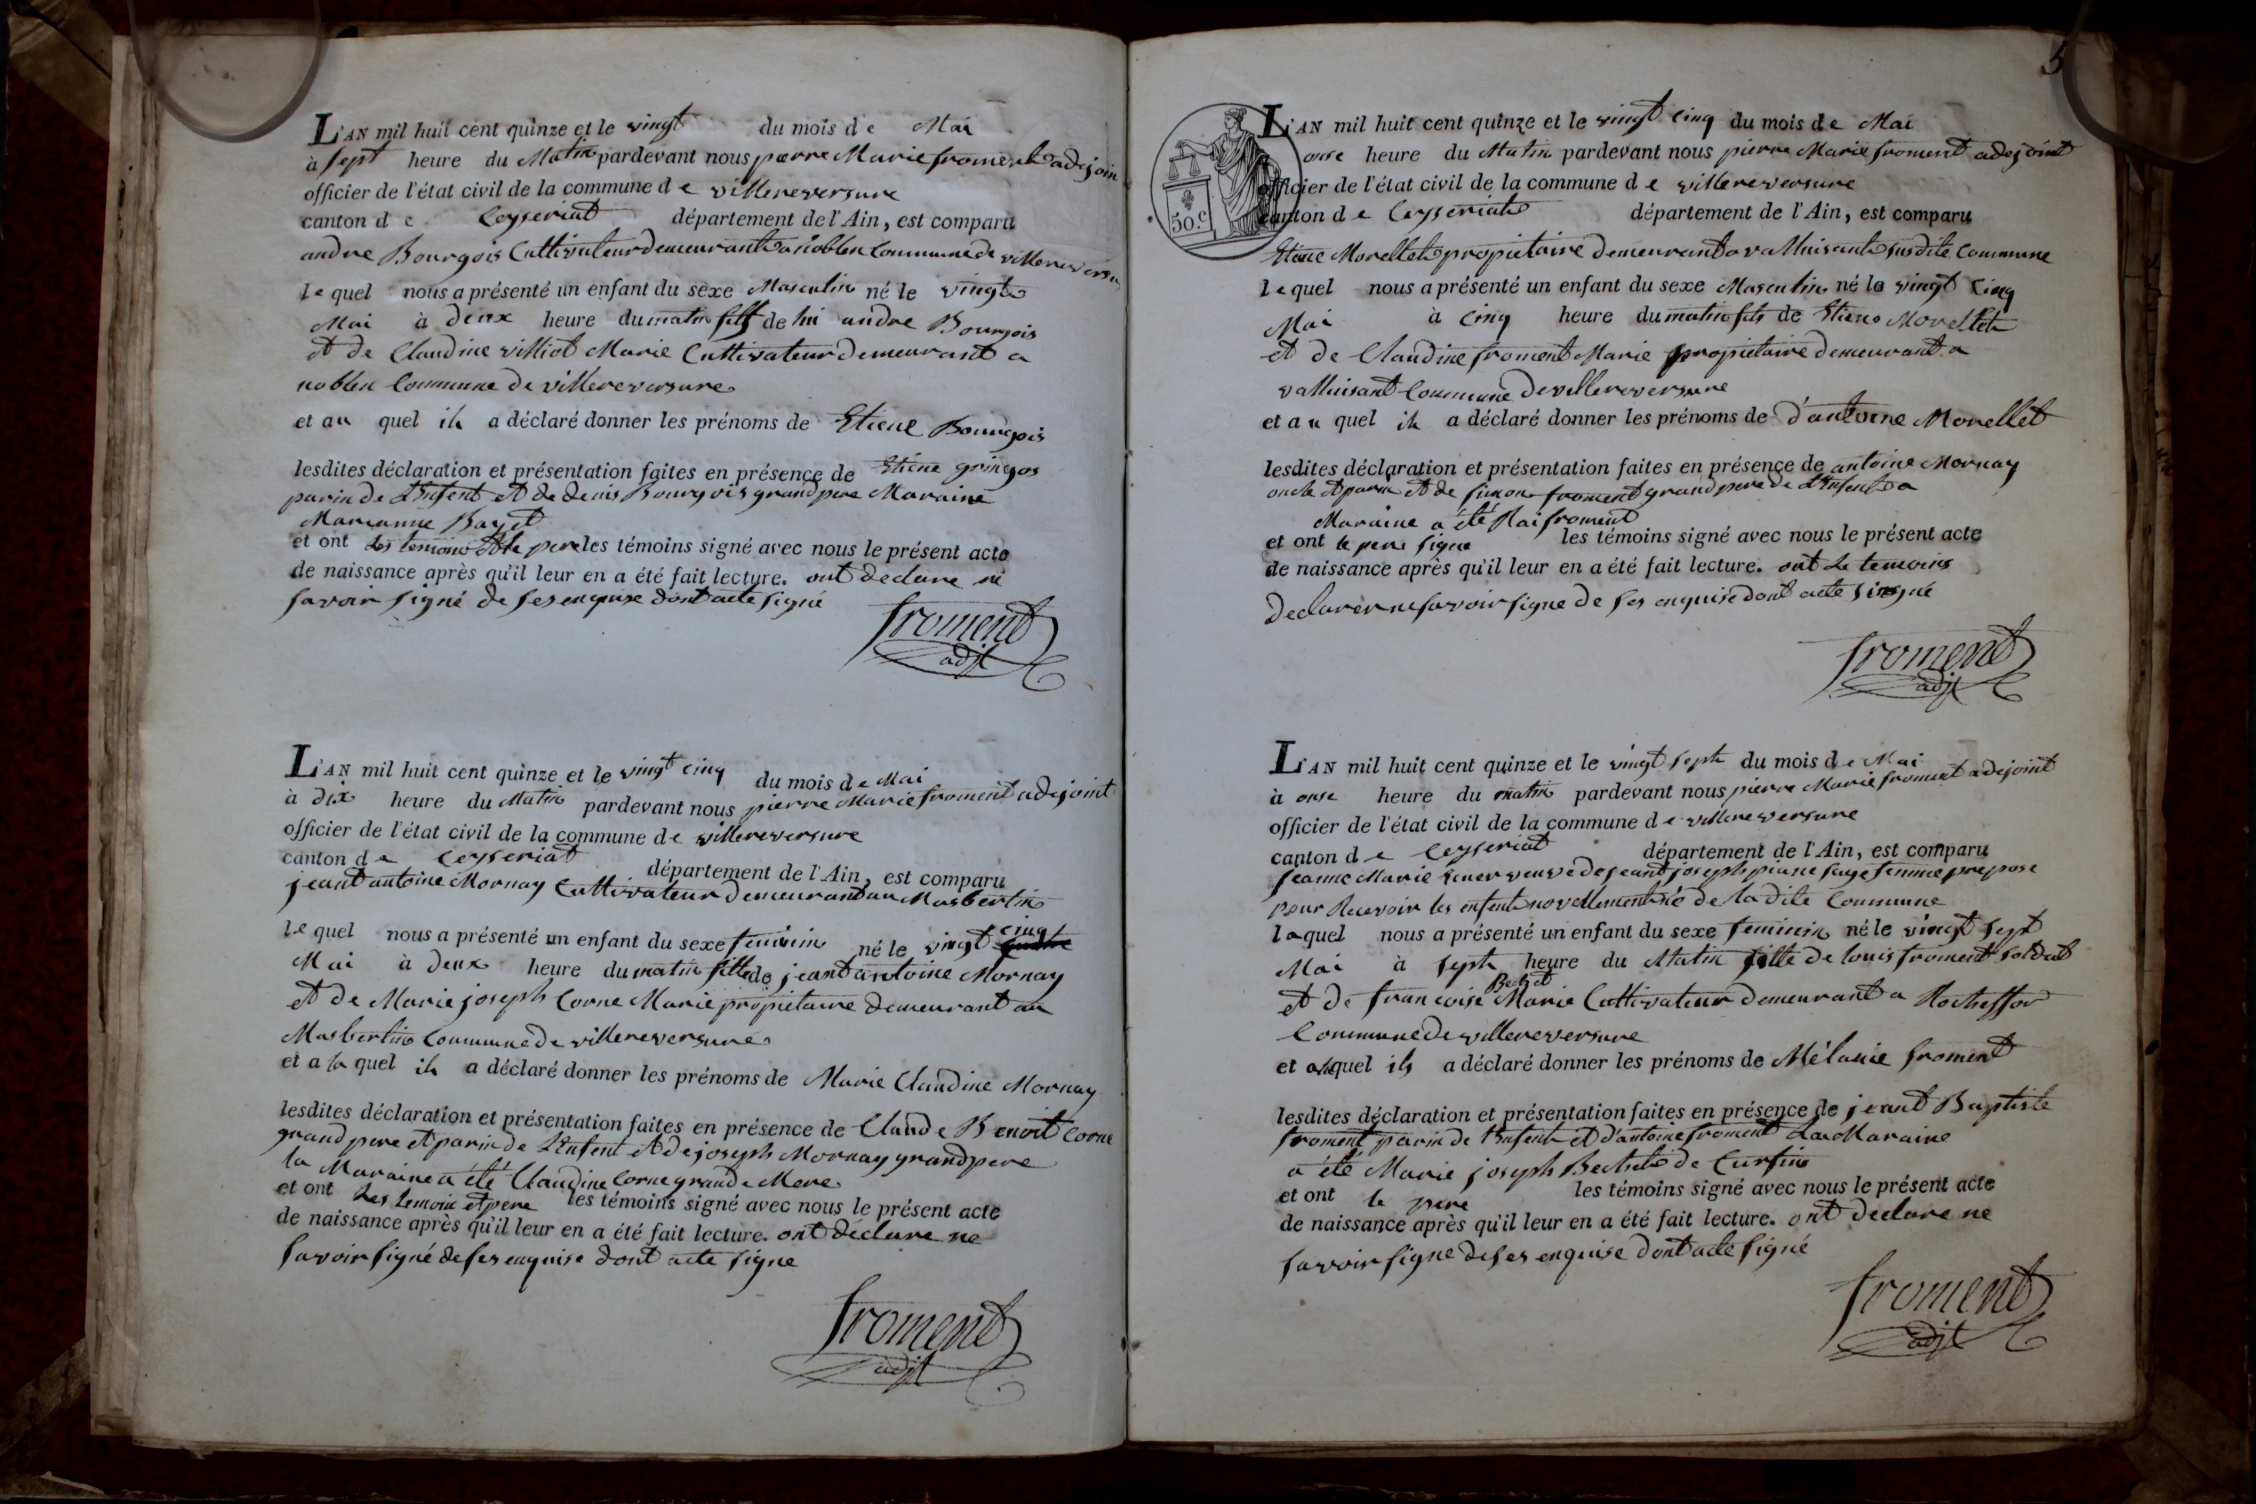 L'AN mil huit cent quinze et le vingt du mois de Mai
à sept heure du Matin pardevant nous pierre Marie froment adejoin
officier de l'état civil de la commune de villereversure
canton de Ceyseriat département de l'Ain, est comparu
andre Bourgois Cultivateur demeurant a noblen Commune de villereversure
lequel nous a présenté un enfant du sexe Masculin né le vingt
Mai à deux heure du matin fils de lui andre Bourgois
et de Claudine villiot Marie Cultivateur demeurant a
noblen Commune de villereversure
et au quel il a déclaré donner les prénoms de Etiene Bourgois
lesdites déclaration et présentation faites en présence de Etiene gringos
parin de L'Enfent et de denis Bourgois grand pere Maraine
Marianne Bayet
et ont les temoins et le pere les témoins signé avec nous le présent acte
de naissance après qu'il leur en a été fait lecture. ont declare ne
savoir signé de ses enquise dont acte signé
froment
adjt
L'AN mil huit cent quinze et le vingt cinq du mois de Mai
à dix heure du Matin pardevant nous pierre Marie froment adejoint
officier de l'état civil de la commune de villereversure
canton de Ceyseriat département de l'Ain, est comparu
jeant antoine Mornay Cultivateur demeurant au Masbertin
lequel nous a présenté un enfant du sexe feminin né le vingt cinq
Mai à deux heure du matin fille de jeant antoine Mornay
et de Marie joseph Corne Marie propietaire demeurant au
Masbertin Commune de villereversure
et a la quel il a déclaré donner les prénoms de Marie Claudine Mornay
lesdites déclaration et présentation faites en présence de Claude Benoit Corne
grand pere et parin de L'Enfent et de joseph Mornay grand pere
la Maraine a été Claudine Corne grande Mere
et ont Les temoin et pere les témoins signé avec nous le présent acte
de naissance après qu'il leur en a été fait lecture. ont déclare ne
savoir signé de ses enquise dont acte signe
froment
adjt
5
50.c
L'AN mil huit cent quinze et le vingt cinq du mois de Mai
onse heure du Matin pardevant nous pierre Marie froment adejoint
officier de l'état civil de la commune de villereversure
canton de Ceyseriat département de l'Ain, est comparu
Etiene Morellet propietaire demeurant a valluisant susdite Commune
lequel nous a présenté un enfant du sexe Masculin né le vingt Cinq
Mai à Cinq heure du matin fils de Etiene Morellet
et de Claudine froment Marie propietaire demeurant a
valluisant Commune de villereversure
et au quel il a déclaré donner les prénoms de d'antoine Morellet
lesdites déclaration et présentation faites en présence de antoine Mornay
oncle et parin et de Simon froment grand pere de L'Enfent
Maraine a été froment
et ont le pere signe les témoins signé avec nous le présent acte
de naissance après qu'il leur en a été fait lecture. ont Le temoins
declarer ne savoir signe de ses enquise dont acte signé
froment
adjt
L'AN mil huit cent quinze et le vingt sept du mois de Mai
à onse heure du matin pardevant nous pierre Marie froment adejoint
officier de l'état civil de la commune de villereversure
canton de Ceyseriat département de l'Ain, est comparu
jeanne Marie veuve de jeant joseph sage femme prepose
pour Recevoir les enfent novellement né de la dite Commune
laquel nous a présenté un enfant du sexe feminin né le vingt sept
Mai à sept heure du Matin fille de louis froment soldat
et de francoise Marie Cultivateur demeurant a Rocheffor
Commune de villereversure
et a la quel ils a déclaré donner les prénoms de Mélanie froment
lesdites déclaration et présentation faites en présence de jeant Baptiste
froment parin de l'Enfent et d'antoine froment La Maraine
a été Marie joseph de Curfin
et ont le pere les témoins signé avec nous le présent acte
de naissance après qu'il leur en a été fait lecture. ont declare ne
savoir signe de ses enquise dont acte signé
froment
adjt